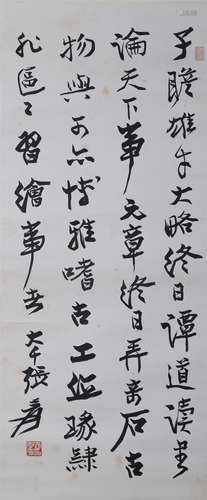 子瞻雄才大略終日譚道讀書
論天下事元章終日弄奇石古
物與可亦博雅嗜古工作篆隸
非區區習繪事者 大千張爰